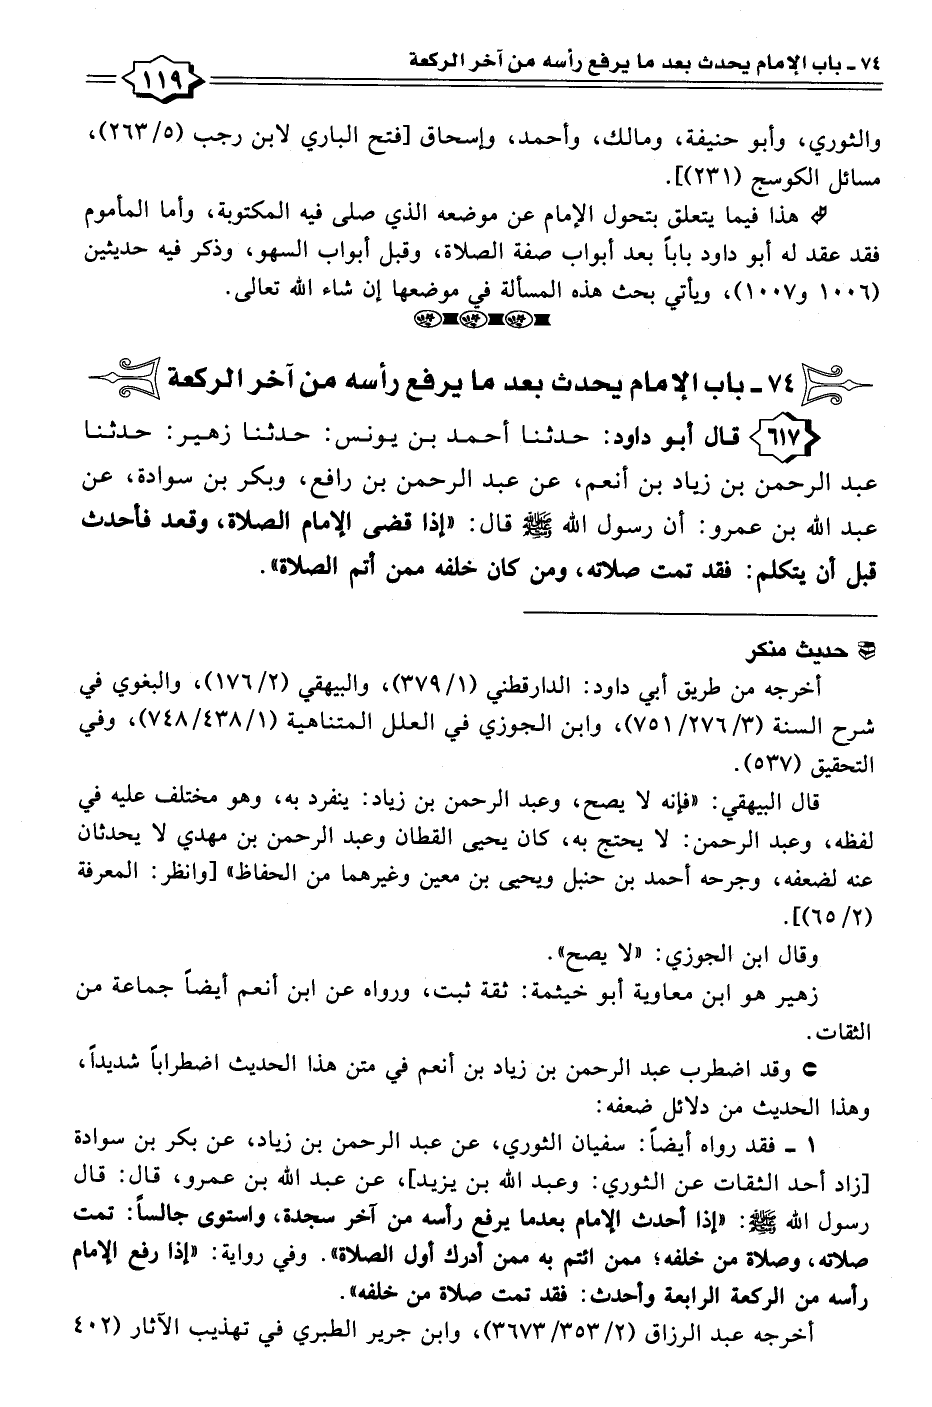 ٧٤ - باب الإمام يحدث بعد ما يرفع رأسه من آخر الركعة
١١٩
والثوري، وأبو حنيفة، ومالك، وأحمد، وإسحاق [فتح الباري لابن رجب (٢٦٣/٥)،
مسائل الكوسج (٢٣١)].
هذا فيما يتعلق بتحول الإمام عن موضعه الذي صلى فيه المكتوبة، وأما المأموم
فقد عقد له أبو داود باباً بعد أبواب صفة الصلاة، وقبل أبواب السهو، وذكر فيه حديثين
(١٠٠٦ و١٠٠٧)، ويأتي بحث هذه المسألة في موضعها إن شاء الله تعالى.
٧٤ - باب الإمام يحدث بعد ما يرفع رأسه من آخر الركعة
٦١٧ قال أبو داود: حدثنا أحمد بن يونس: حدثنا زهير: حدثنا
عبد الرحمن بن زياد بن أنعم، عن عبد الرحمن بن رافع، وبكر بن سوادة، عن
عبد الله بن عمرو: أن رسول الله ﷺ قال: «إذا قضى الإمام الصلاة، وقعد فأحدث
قبل أن يتكلم: فقد تمت صلاته، ومن كان خلفه ممن أتم الصلاة».
حديث منكر
أخرجه من طريق أبي داود: الدارقطني (٣٧٩/١)، والبيهقي (١٧٦/٢)، والبغوي في
شرح السنة (٧٥١/٢٧٦/٣)، وابن الجوزي في العلل المتناهية (٧٤٨/٤٣٨/١)، وفي
التحقيق (٥٣٧).
قال البيهقي: «فإنه لا يصح، وعبد الرحمن بن زياد: ينفرد به، وهو مختلف عليه في
لفظه، وعبد الرحمن: لا يحتج به، كان يحيى القطان وعبد الرحمن بن مهدي لا يحدثان
عنه لضعفه، وجرحه أحمد بن حنبل ويحيى بن معين وغيرهما من الحفاظ» [وانظر: المعرفة
(٦٥/٢)].
وقال ابن الجوزي: «لا يصح».
زهير هو ابن معاوية أبو خيثمة: ثقة ثبت، ورواه عن ابن أنعم أيضاً جماعة من
الثقات.
وقد اضطرب عبد الرحمن بن زياد بن أنعم في متن هذا الحديث اضطراباً شديداً،
وهذا الحديث من دلائل ضعفه:
١ - فقد رواه أيضاً: سفيان الثوري، عن عبد الرحمن بن زياد، عن بكر بن سوادة
[زاد أحد الثقات عن الثوري: وعبد الله بن يزيد]، عن عبد الله بن عمرو، قال: قال
رسول الله ﷺ: «إذا أحدث الإمام بعدما يرفع رأسه من آخر سجدة، واستوى جالساً: تمت
صلاته، وصلاة من خلفه؛ ممن ائتم به ممن أدرك أول الصلاة». وفي رواية: «إذا رفع الإمام
رأسه من الركعة الرابعة وأحدث: فقد تمت صلاة من خلفه».
أخرجه عبد الرزاق (٣٦٧٣/٣٥٣/٢)، وابن جرير الطبري في تهذيب الآثار (٤٠٢